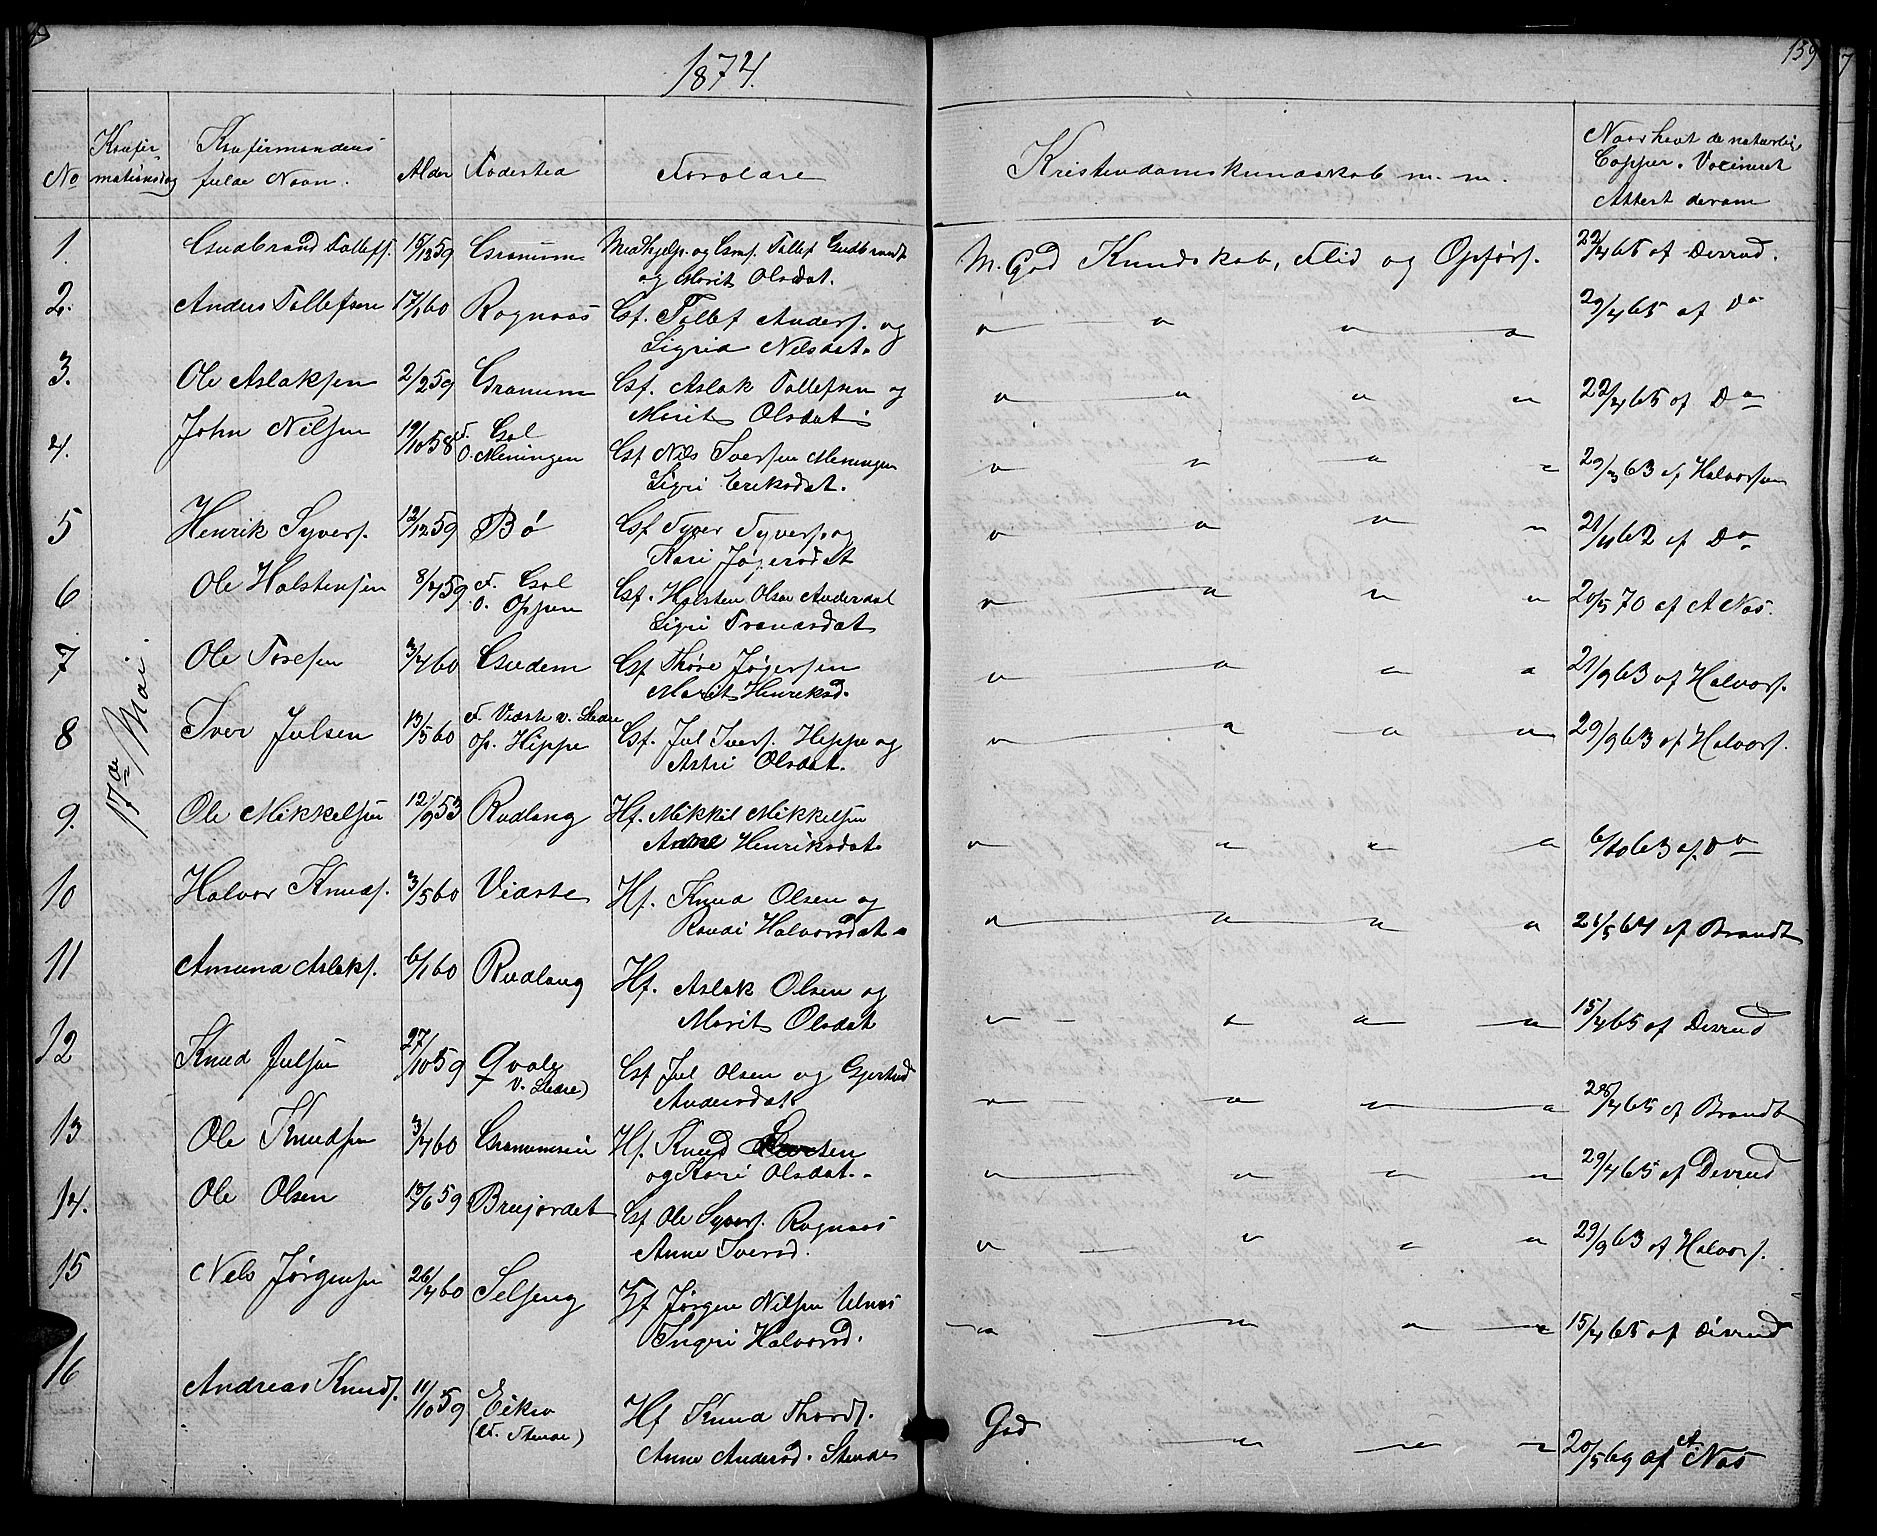 1874.
159
No
Konfir-
mationsdag
Konfirmandens
fulde Navn.
Alder
Fødested
Forældre
Kristendomskundskab m. m.
Naar havt de naturlige
Copper. Vaccineret
Attest derom
17de Mai
1. Gudbrand Tollefs. 15/12 59 Granum Medhjelp. og Gmf. Tollef Gudbrands
og Marit Olsdat. M. God Kundskab, Flid og Opførs. 22/4 65 af Devrud.
2. Anders Tollefsen 17/1 60 Rognaas Gsf. Tollef Anders. og
Sigrid Nelsdat. " " " " 29/4 65 af Do
3. Ole Aslaksen 2/2 59 Granum Gsf. Aslak Tollefsen og
Marit Olsdat. " " " " 22/4 65 af Do
4. John Nilsen 19/10 58 f. Gol
O. Meningen Gsf Nils Iversen Meningen
Sigri Eriksdat. " " " " 29/3 63 af Halvorsen
5 Henrik Syvers. 12/12 59 Bø Gsf Syver Syvers. og
Kari Jøgersdat " " " " 21/11 62 af Do
6 Ole Halstensen 8/4 59 f. Gol
o. Oppen Gsf. Halsten Olsen Anderdal
Sigri Tranesdat " " " " 20/5 70 af A Nas.
7 Ole Toresen 3/4 60 Gudem Gsf Thore Jøgersen
Marit Henriksd. " " " " 21/9 63 af Halvors.
8 Iver Julsen 13/5 60 f. Vidste v. Slidre
op. Hippe Gsf. Jul Ivers. Hippe og
Astri Olsdat. " " " " 29/9 63 af Halvors.
9. Ole Mikkelsen 12/9 53 Rudlang Hf. Mikkil Mikkelsen
Anne Henriksdat. " " " " 6/10 63 af. Do
10 Halvor Knuds. 3/5 60 Vidste Hf. Knud Olsen og
Randi Halvorsdat. " " " " 26/5 64 af Brandt
11 Amund Aslaks. 6/1 60 Rudlang Hf. Aslak Olsen og
Marit Olsdat " " " " 15/4 65 af Devrud
12 Knud Julsen 27/10 59 Qvale
v. Slidre) Gsf Jul Olsen og Gjertrud
Andersdat " " " " 28/4 65 af Brandt
13 Ole Knudsen 3/4 60 Granumseie Hf. Knud
og Kari Olsdat. " " " " 29/4 65 af Devrud
14. Ole Olsen 13/6 59 Brujordet Gsf Ole Syvers. Rognaas
Anne Iversd. " " " " 29/9 63 af Halvors.
15 Nels Jørgensen 26/4 60 Selseng Hf Jørgen Nilsen Ulnes
Ingri Halvorsd. " " " " 15/4 65 af Devrud
16 Andreas Knuds. 11/10 59 Eikro
(f. Stende) Hf Knud Thords.
Anne Andersd. Stende God " " " 20/5 69 af A. Nas